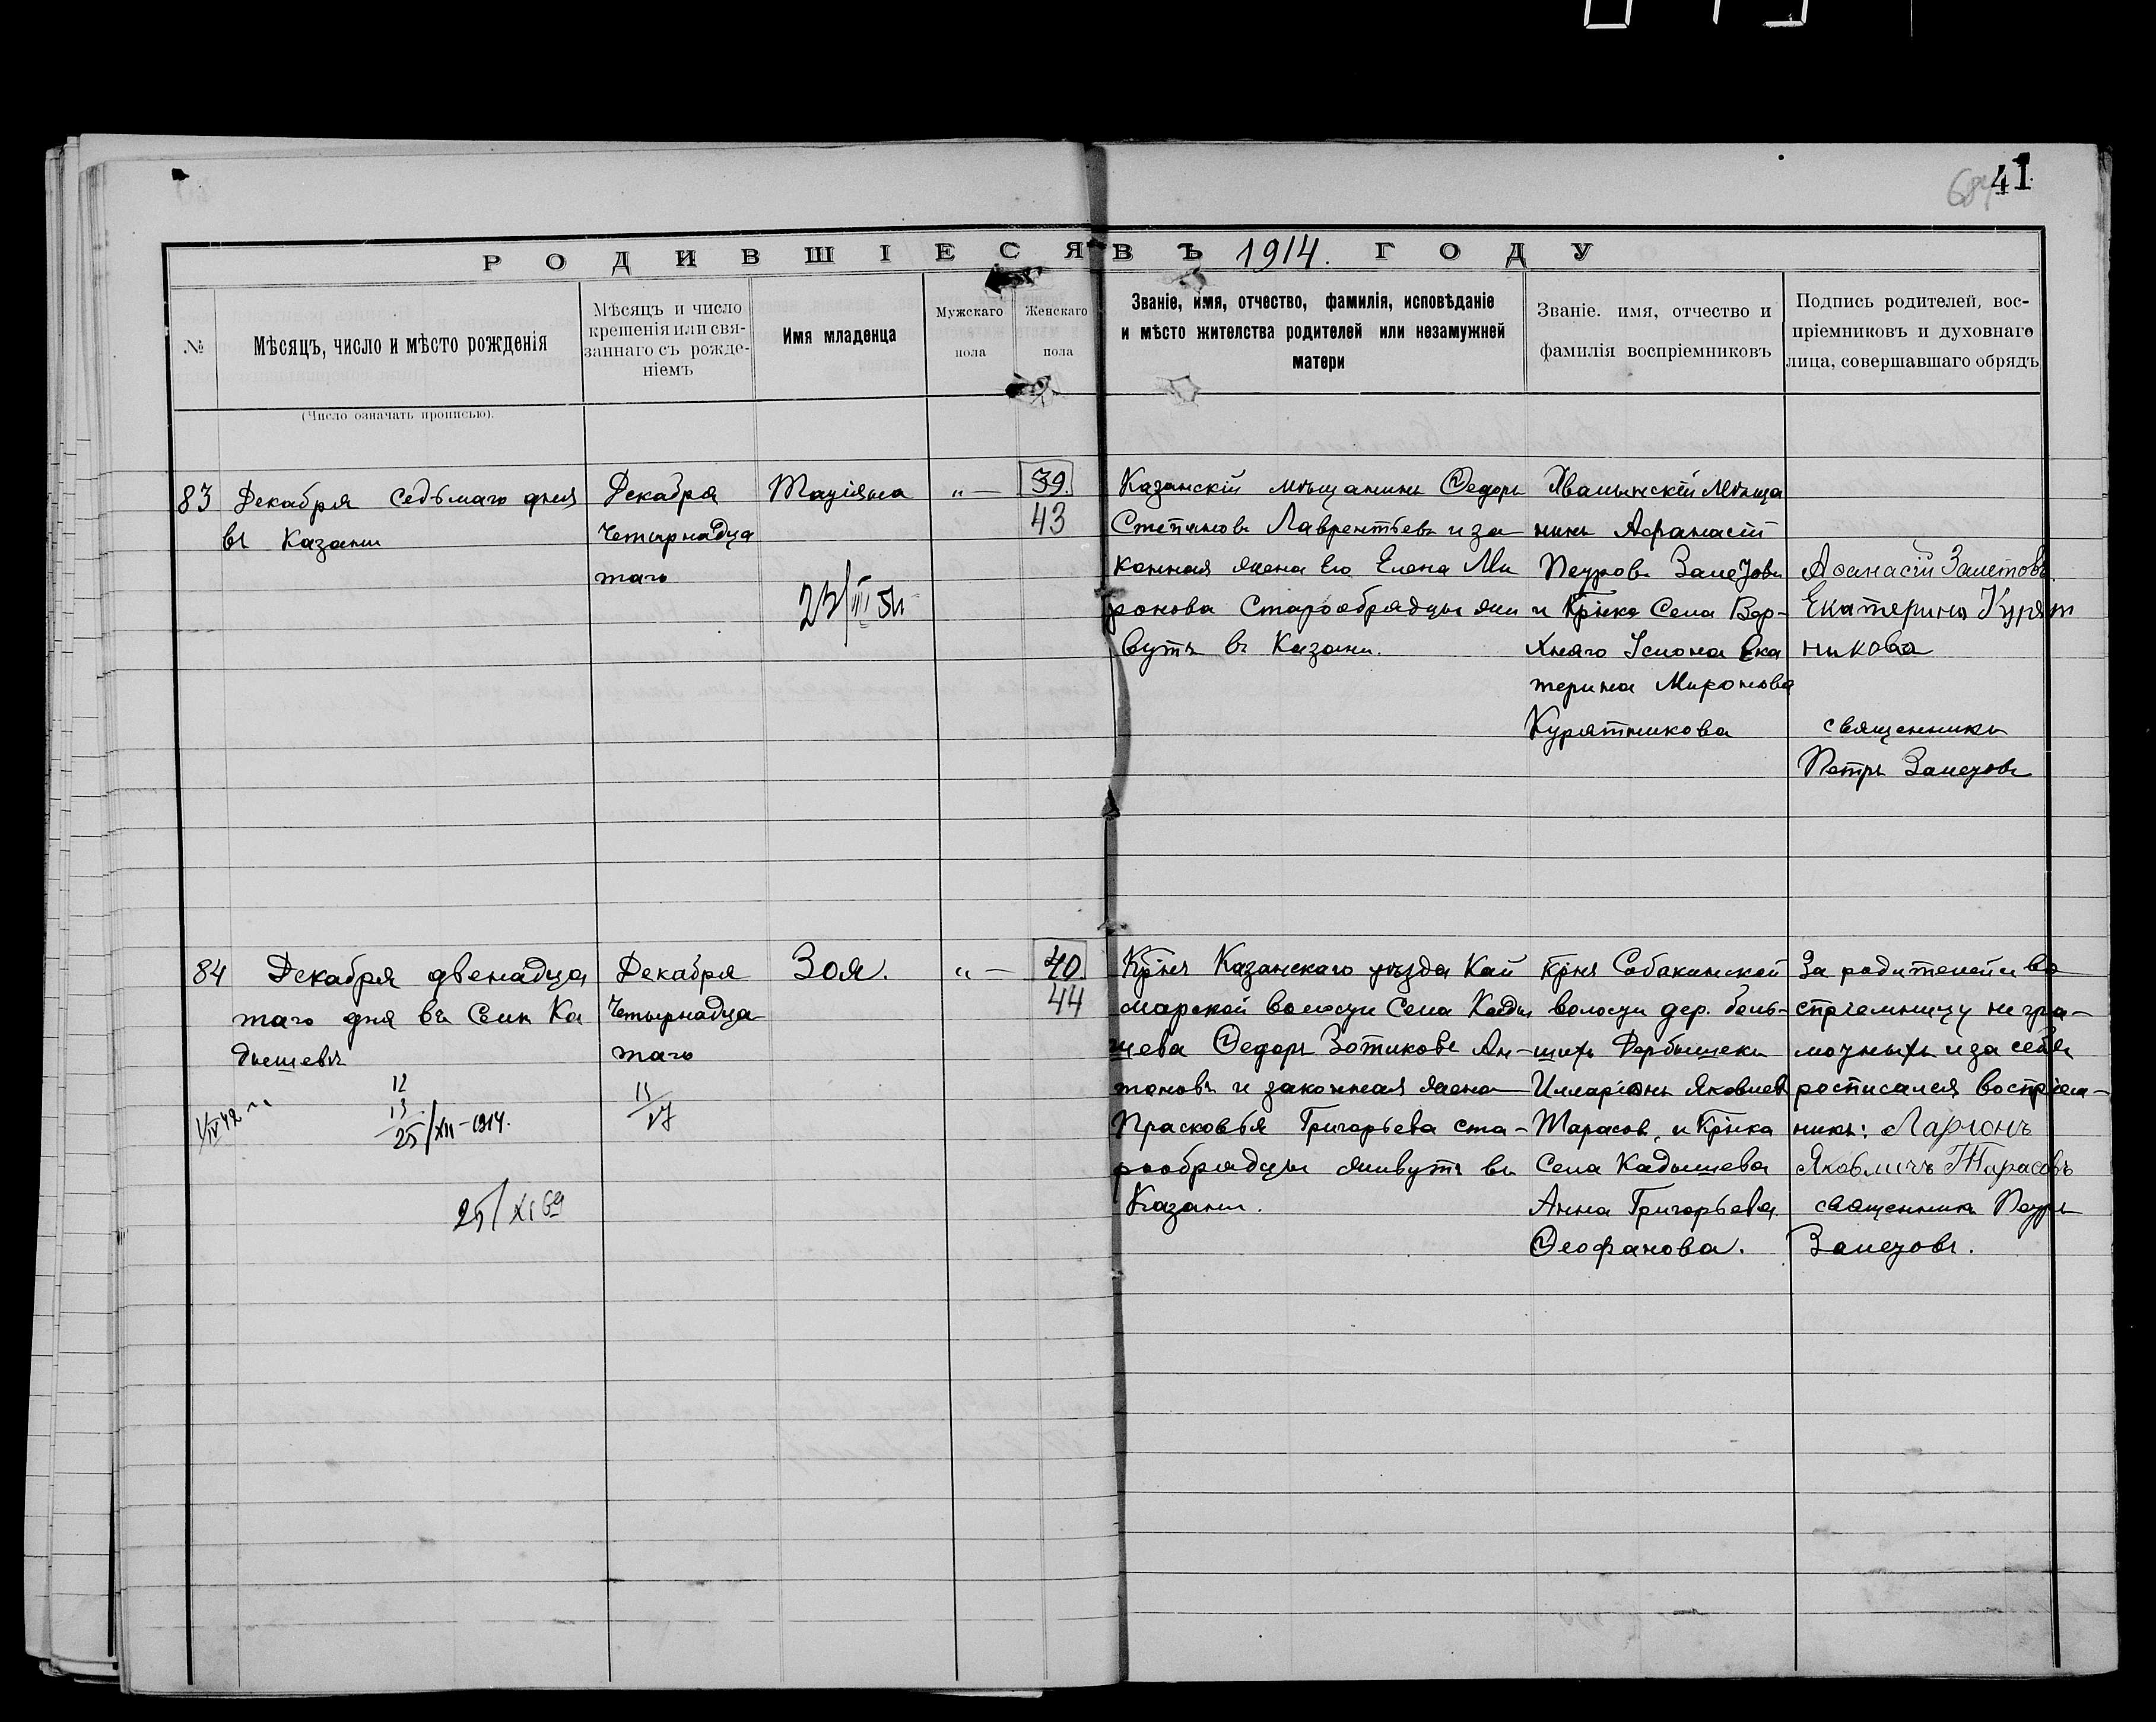 41
РОДИВШІЕСЯ ВЪ 1914. ГОДУ
№
Мѣсяцъ, число и мѣсто рожденія
(Число означать прописью).
Мѣсяцъ и число
крещенія или свя-
заннаго съ рожде-
ніемъ
Имя младенца
Мужскаго
пола
Женскаго
пола
Званіе, имя, отчество, фамилія, исповѣданіе
и мѣсто жителства родителей или незамужней
матери
Званіе. имя, отчество и
фамилія воспріемниковъ
Подпись родителей, вос-
пріемниковъ и духовнаго
лица, совершавшаго обрядъ
83
Декабря седьмаго дня
въ Казани
Декабря
Четырнадца
таго
Татіяна
23/III 54
„ —
39.
43
Казанскій мѣщанинъ Ѳедоръ
Степановъ Лаврентьевъ и за
конная жена его Елена Ми
ронова Старообрядцы жи
вутъ въ Казани.
Хвалынскій Мѣща
нинъ Афанасій
Петровъ Заметовъ
и Крѣнка Села Вер-
хняго Услона Ека
терина Миронова
Курятникова
Аѳанасій Заметовъ.
Екатерина Курят
никова
священникъ
Петръ Заметовъ
84
Декабря двенадца
таго дня въ Селѣ Ка
дышевѣ
12
13
25/XII-1914.
1/IV 42 г.
25/XI 69
Декабря
Четырнадца
таго
11
17
Зоя.
„ —
40.
44
Крѣнъ Казанскаго уѣзда Кай
марской волости Села Кады
шева Ѳедоръ Зотиковъ Ан-
тоновъ и законная жена
Прасковья Григорьева ста-
рообрядцы живутъ въ
Казани.
крѣнъ Собакинской
волости дер. боль-
шихъ Дербышекъ
Илларіонъ Яковлев
Тарасов, и Крѣнка
Села Кадышева
Анна Григорьева
Ѳеофанова.
За родителей и во
спріемницу не гра-
мотныхъ и за себя
росписался воспріем-
никъ: Ларіонъ
Яковличъ Тарасовъ
священникъ Петръ
Заметовъ.